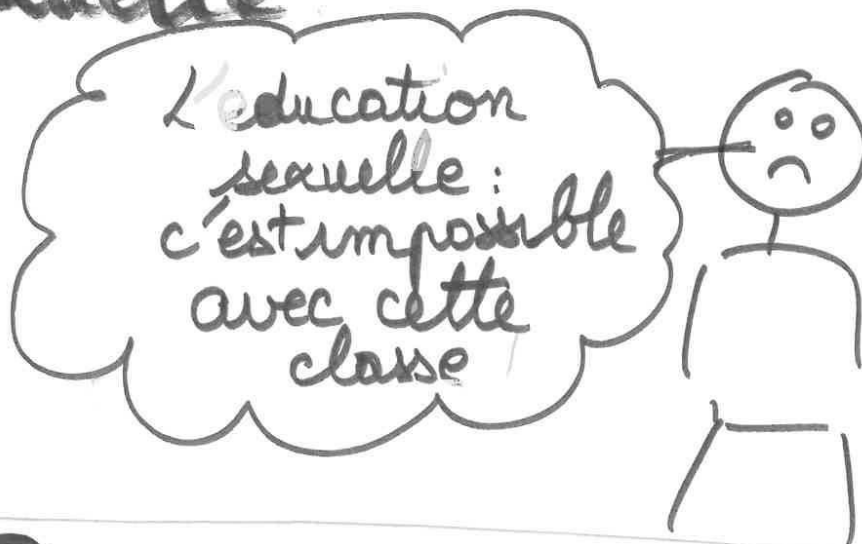 L'education
sexuelle :
c'est impossible
avec cette
classe